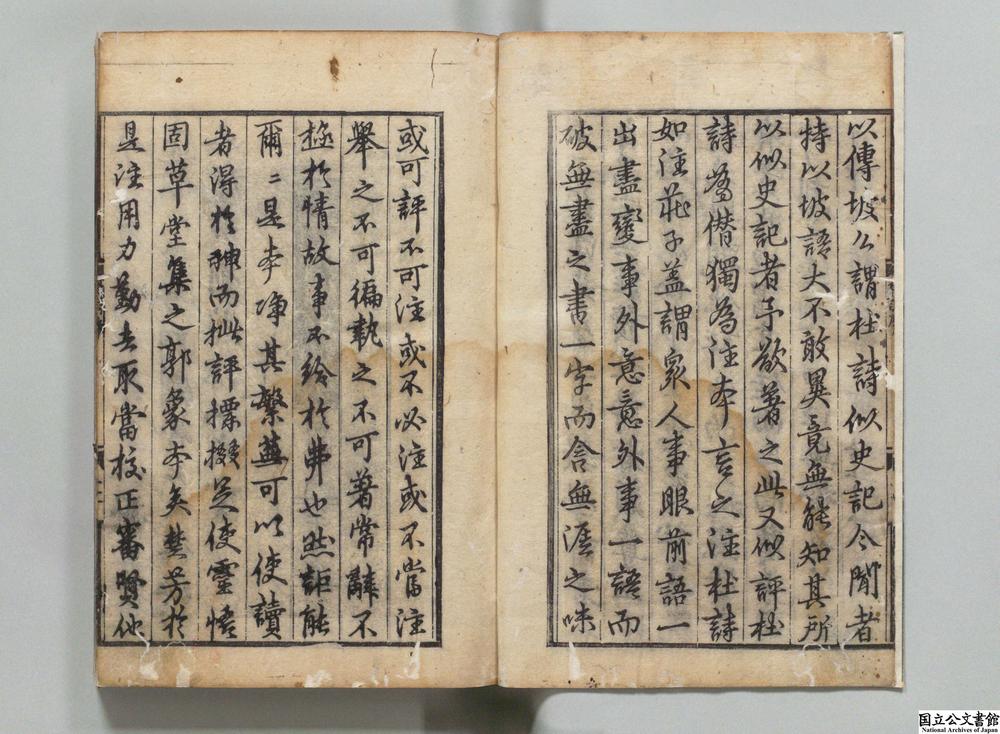 以傳坡公謂杜詩似史記今聞者
持以坡語大不敢異竟無能知其所
以似史記者予欲著之此又似評杜
詩為僭獨為注本言之注杜詩
如注莊子蓋謂衆人事眼前語一
出盡變事外意意外事一語而
破無盡之書一字而含無涯之味
或可評不可注或不必注或不當注
舉之不可徧執之不可著常辭不
極於情故事不給於弗也然詎能
爾〻是本淨其繁蕪可以使讀
者得於神而批評摽掇足使靈悟
固草堂集之郭象本矣楚芳於
是注用力勤去取當校正審賢他
国立公文書館
National Archives of Japan